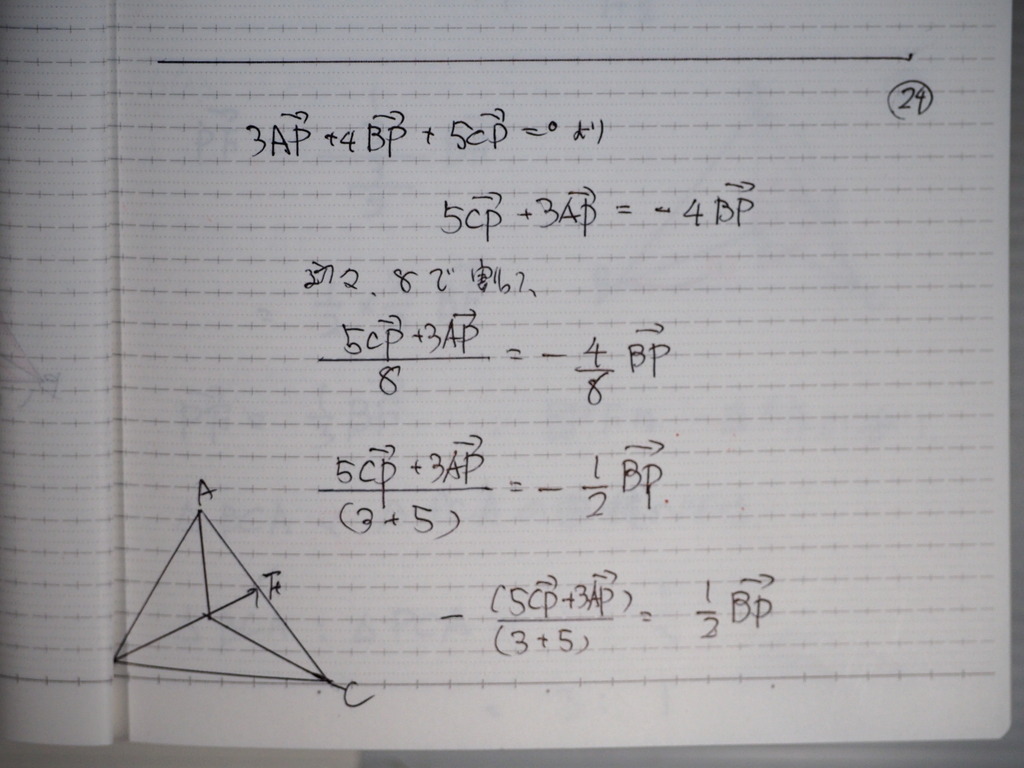 24
3AP + 4BP + 5CP = 0 より
5CP + 3AP = - 4 BP
8で割って、
5CP + 3AP / 8 = - 4/8 BP
5CP + 3AP / (3 + 5) = - 1/2 BP.
A
F
- (5CP + 3AP) / (3 + 5) = 1/2 BP
C